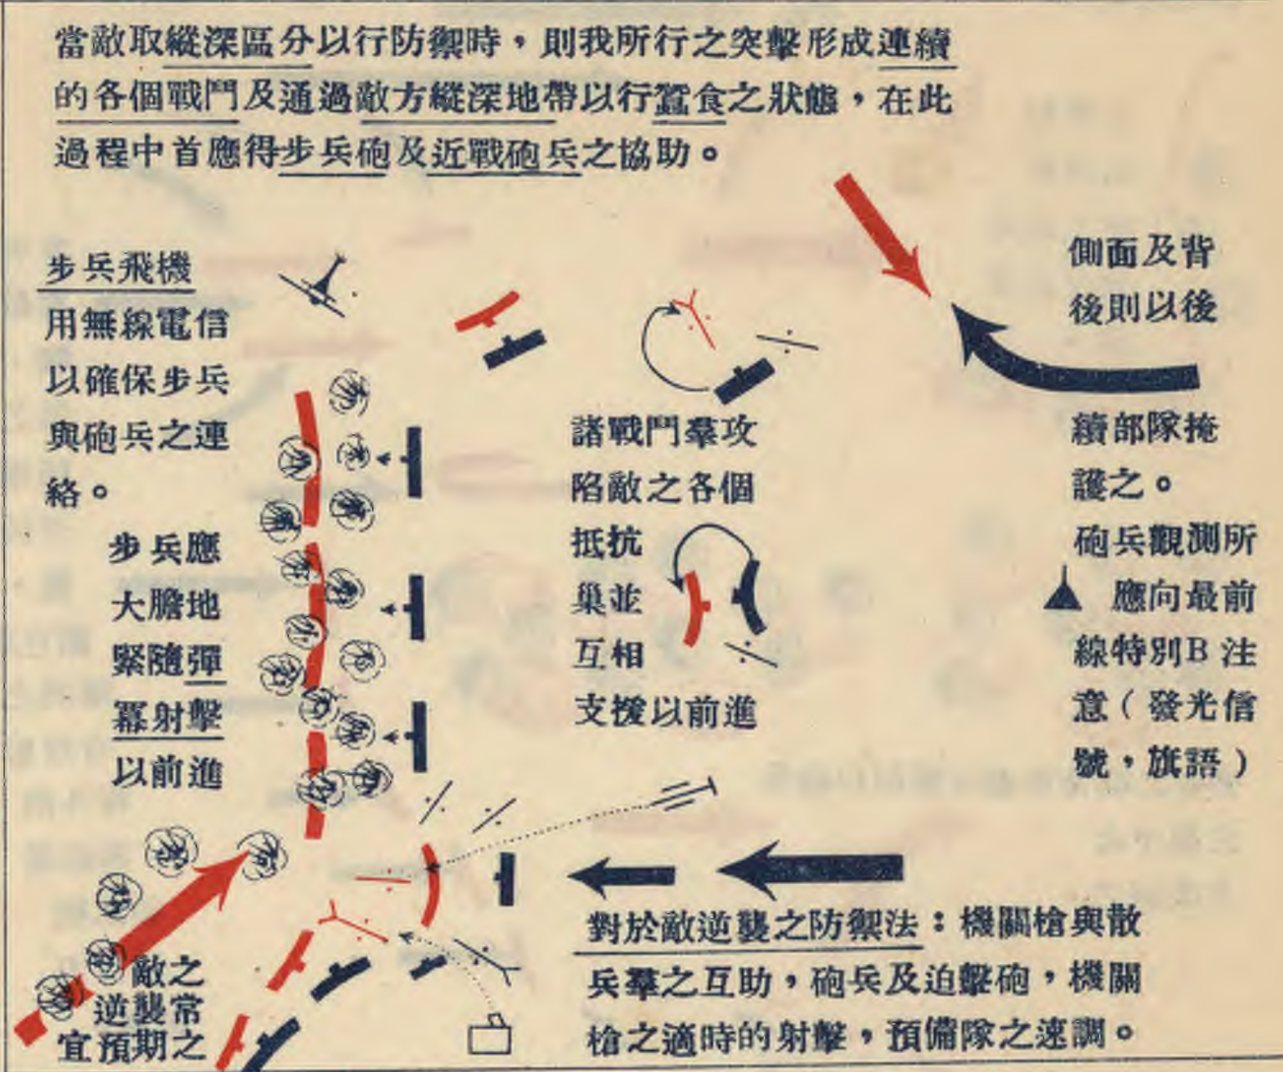 當敵取縱深區分以行防禦時，則我所行之突擊形成連續
的各個戰鬥及通過敵方縱深地帶以行蠶食之狀態，在此
過程中首應得步兵砲及近戰砲兵之協助。
步兵飛機
用無線電信
以確保步兵
與砲兵之連
絡。
步兵應
大膽地
緊隨彈
幕射擊
以前進
敵之
逆襲常
宜預期之
諸戰鬥羣攻
陷敵之各個
抵抗
巢並
互相
支援以前進
側面及背
後則以後
續部隊掩
護之。
砲兵觀測所
應向最前
線特別B注
意（發光信
號，旗語）
對於敵逆襲之防禦法：機關槍與散
兵羣之互助，砲兵及迫擊砲，機關
槍之適時的射擊，預備隊之速調。